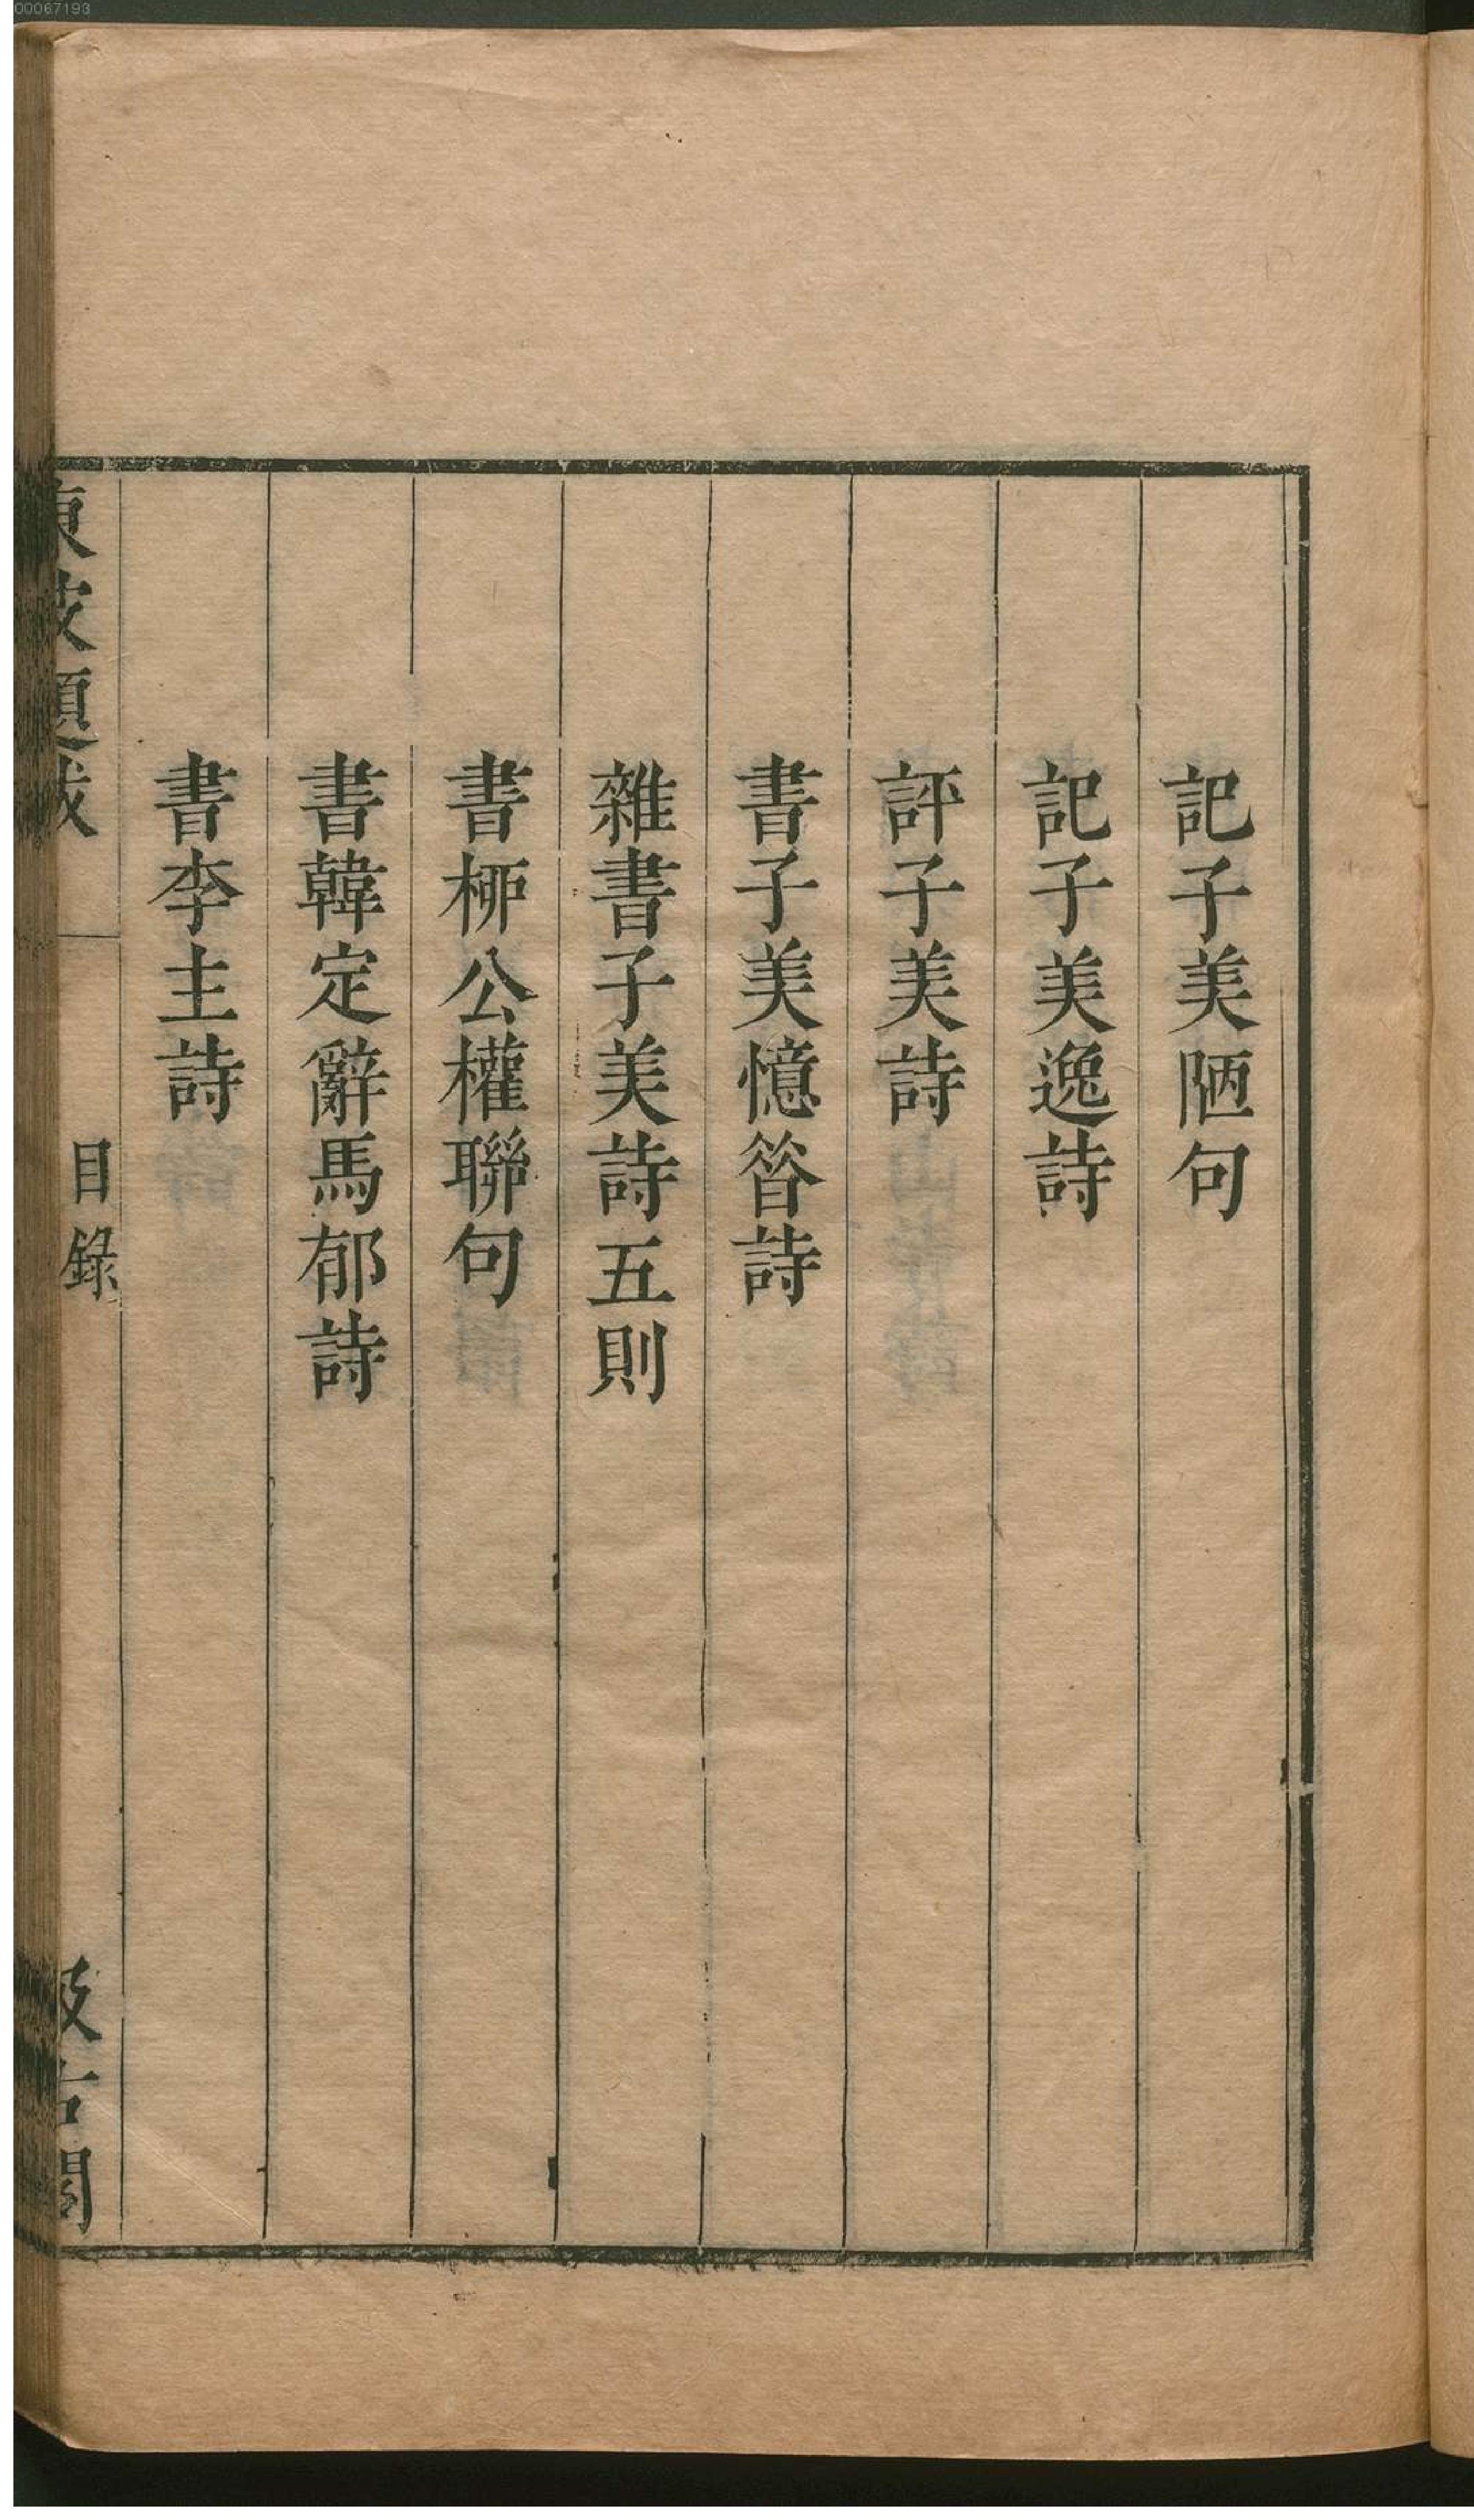 記子美陋句
記子美逸詩
評子美詩
書子美憶昝詩
雜書子美詩五則
書栁公權聯句
書韓定辭馬郁詩
書李主詩
東坡題跋
目錄
汲古閣
00067193